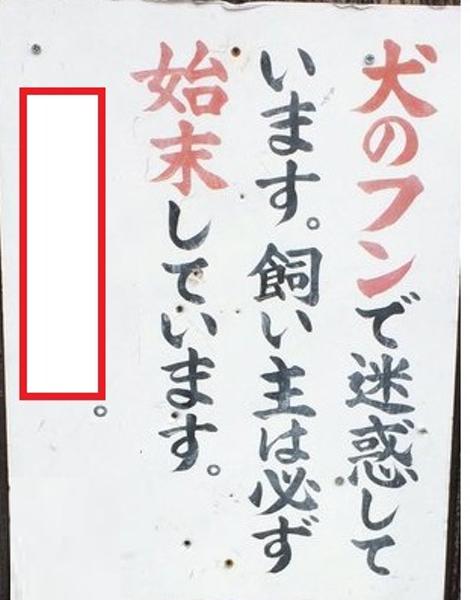 犬のフンで迷惑して
います。飼い主は必ず
始末しています。
。